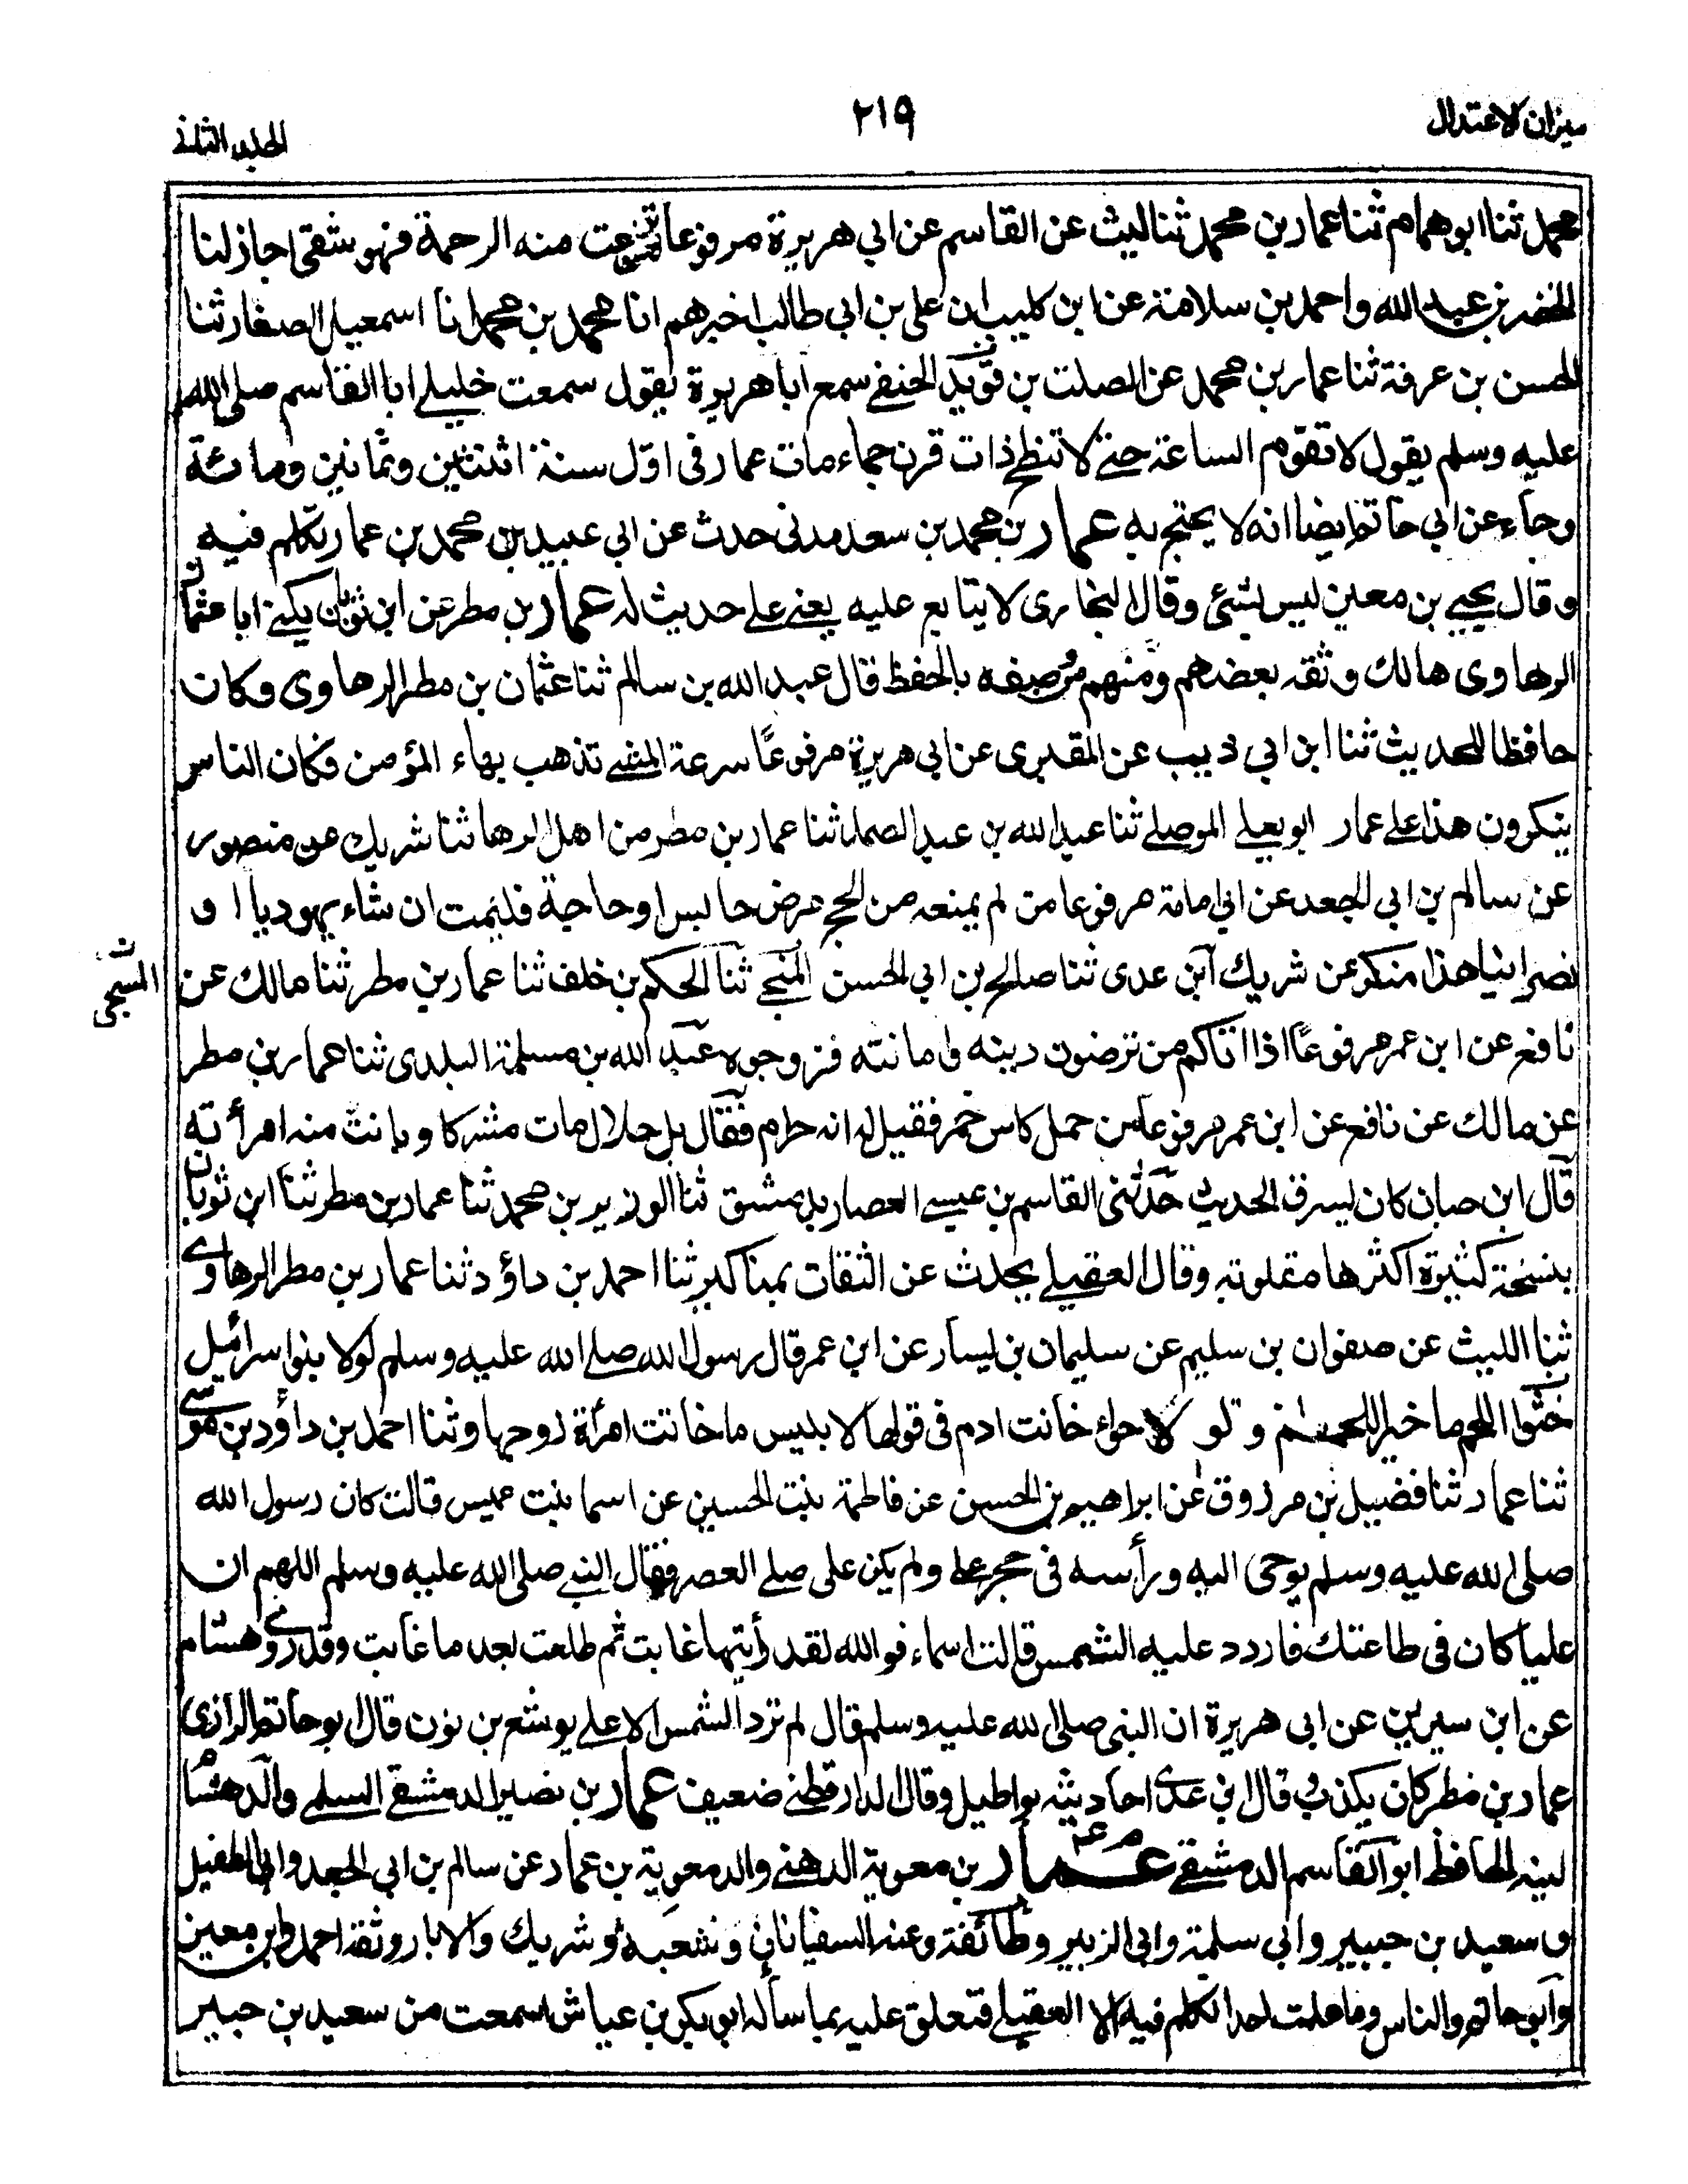 ميزان الاعتدال
٢١٩
الجلد الثانى
محمد ثنا ابو همام ثنا عمار بن محمد ثنا ليث عن القاسم عن ابى هريرة مرفوعا من نزعت منه الرحمة فهو شقى اجاز لنا
الخضر بن عبد الله واحمد بن سلامة عن ابن كليب ان على بن ابى طالب اخبرهم انا محمد بن محمد انا اسمعيل الصفار ثنا
الحسن بن عرفة ثنا عمار بن محمد عن الصلت بن قويد الحنفے سمع ابا هريرة يقول سمعت خليلے ابا القاسم صلى الله
عليه وسلم يقول لا تقوم الساعة حتے لا تنطح ذات قرن جماء مات عمار فى اول سنة اثنتين وثمانين ومائة
وجاء عن ابى حاتم ايضا انه لا يحتج به عمار بن محمد بن سعد مدنى حدث عن ابى عبيد بن محمد بن عمار تكلم فيه
وقال يحيے بن معين ليس بشئ وقال البخارى لا يتابع عليه يعنے علے حديث له عمار بن مطر عن ابن ثوبان يكنے ابا عثمان
الرهاوى هالك وثقه بعضهم ومنهم من وصفه بالحفظ قال عبد الله بن سالم ثنا عثمان بن مطر الرهاوى وكان
حافظا للحديث ثنا ابن ابى ذيب عن المقبرى عن ابى هريرة مرفوعًا سرعة المشے تذهب بهاء المؤمن فكان الناس
ينكرون هذا علے عمار ابو يعلے الموصلے ثنا عبد الله بن عبد الصمد ثنا عمار بن مطر من اهل الرها ثنا شريك عن منصور
عن سالم بن ابى الجعد عن ابى امامة مرفوعا من لم يمنعه من الحج مرض حابس او حاجة فليمت ان شاء يهوديا ا و
نصرانيا هذا منكر عن شريك ابن عدى ثنا صالح بن ابى الحسن المنبجے ثنا الحكم بن خلف ثنا عمار بن مطر ثنا مالك عن
نافع عن ابن عمر مرفوعًا اذا اتاكم من ترضون دينه وامانته فزوجوه عبد الله بن مسلمة البلدى ثنا عمار بن مطر
عن مالك عن نافع عن ابن عمر مرفوعا من حمل كاس خمر فقيل له انه حرام فقال بل حلال مات مشركا وبانت منه امرأته
قال ابن حبان كان يسرق الحديث حدثنى القاسم بن عيسے العصار بدمشق ثنا الوزير بن محمد ثنا عمار بن مطر ثنا ابن ثوبان
بنسخة كثيرة اكثرها مقلوبة وقال العقيلے يحدث عن الثقات بمناكير ثنا احمد بن داؤد ثنا عمار بن مطر الرهاوى
ثنا الليث عن صفوان بن سليم عن سليمان بن يسار عن ابن عمر قال رسول الله صلے الله عليه وسلم لولا بنو اسرائيل
خنثوا اللحم ما خنز اللحم ولو لا حواء خانت ادم فى قولها لابليس ما خانت امرأة زوجها وثنا احمد بن داؤد بن موسے
ثنا عمار ثنا فضيل بن مرزوق عن ابراهيم بن الحسن عن فاطمة بنت الحسين عن اسما بنت عميس قالت كان رسول الله
صلى الله عليه وسلم يوحى اليه ورأسه فى حجر علے ولم يكن على صلے العصر فقال النبے صلى الله عليه وسلم اللهم ان
عليا كان فى طاعتك فاردد عليه الشمس قالت اسماء فوالله لقد رأيتها غابت ثم طلعت بعد ما غابت وقد روى هشام
عن ابن سيرين عن ابى هريرة ان النبى صلى الله عليه وسلم قال لم ترد الشمس الا علے يوشع بن نون قال ابو حاتم الرازى
عمار بن مطر كان يكذب وقال ابن عدى احاديثه بواطيل وقال الدارقطنے ضعيف عمار بن نصير الدمشقے السلمے والد هشام
لينه الحافظ ابو القاسم الدمشقے عمار م عہ بن معوية الدهنے والد معوية بن عمار عن سالم بن ابى الجعد وابى الطفيل
و سعيد بن جبير وابى سلمة وابى الزبير وطائفة وعنه السفيانان وشعبة وشريك والابار وثقه احمد وابن معين
وابو حاتم والناس وما علمت احدا تكلم فيه الا العقيلے فتعلق عليه بما سأله ابو بكر بن عياش سمعت من سعيد بن جبير